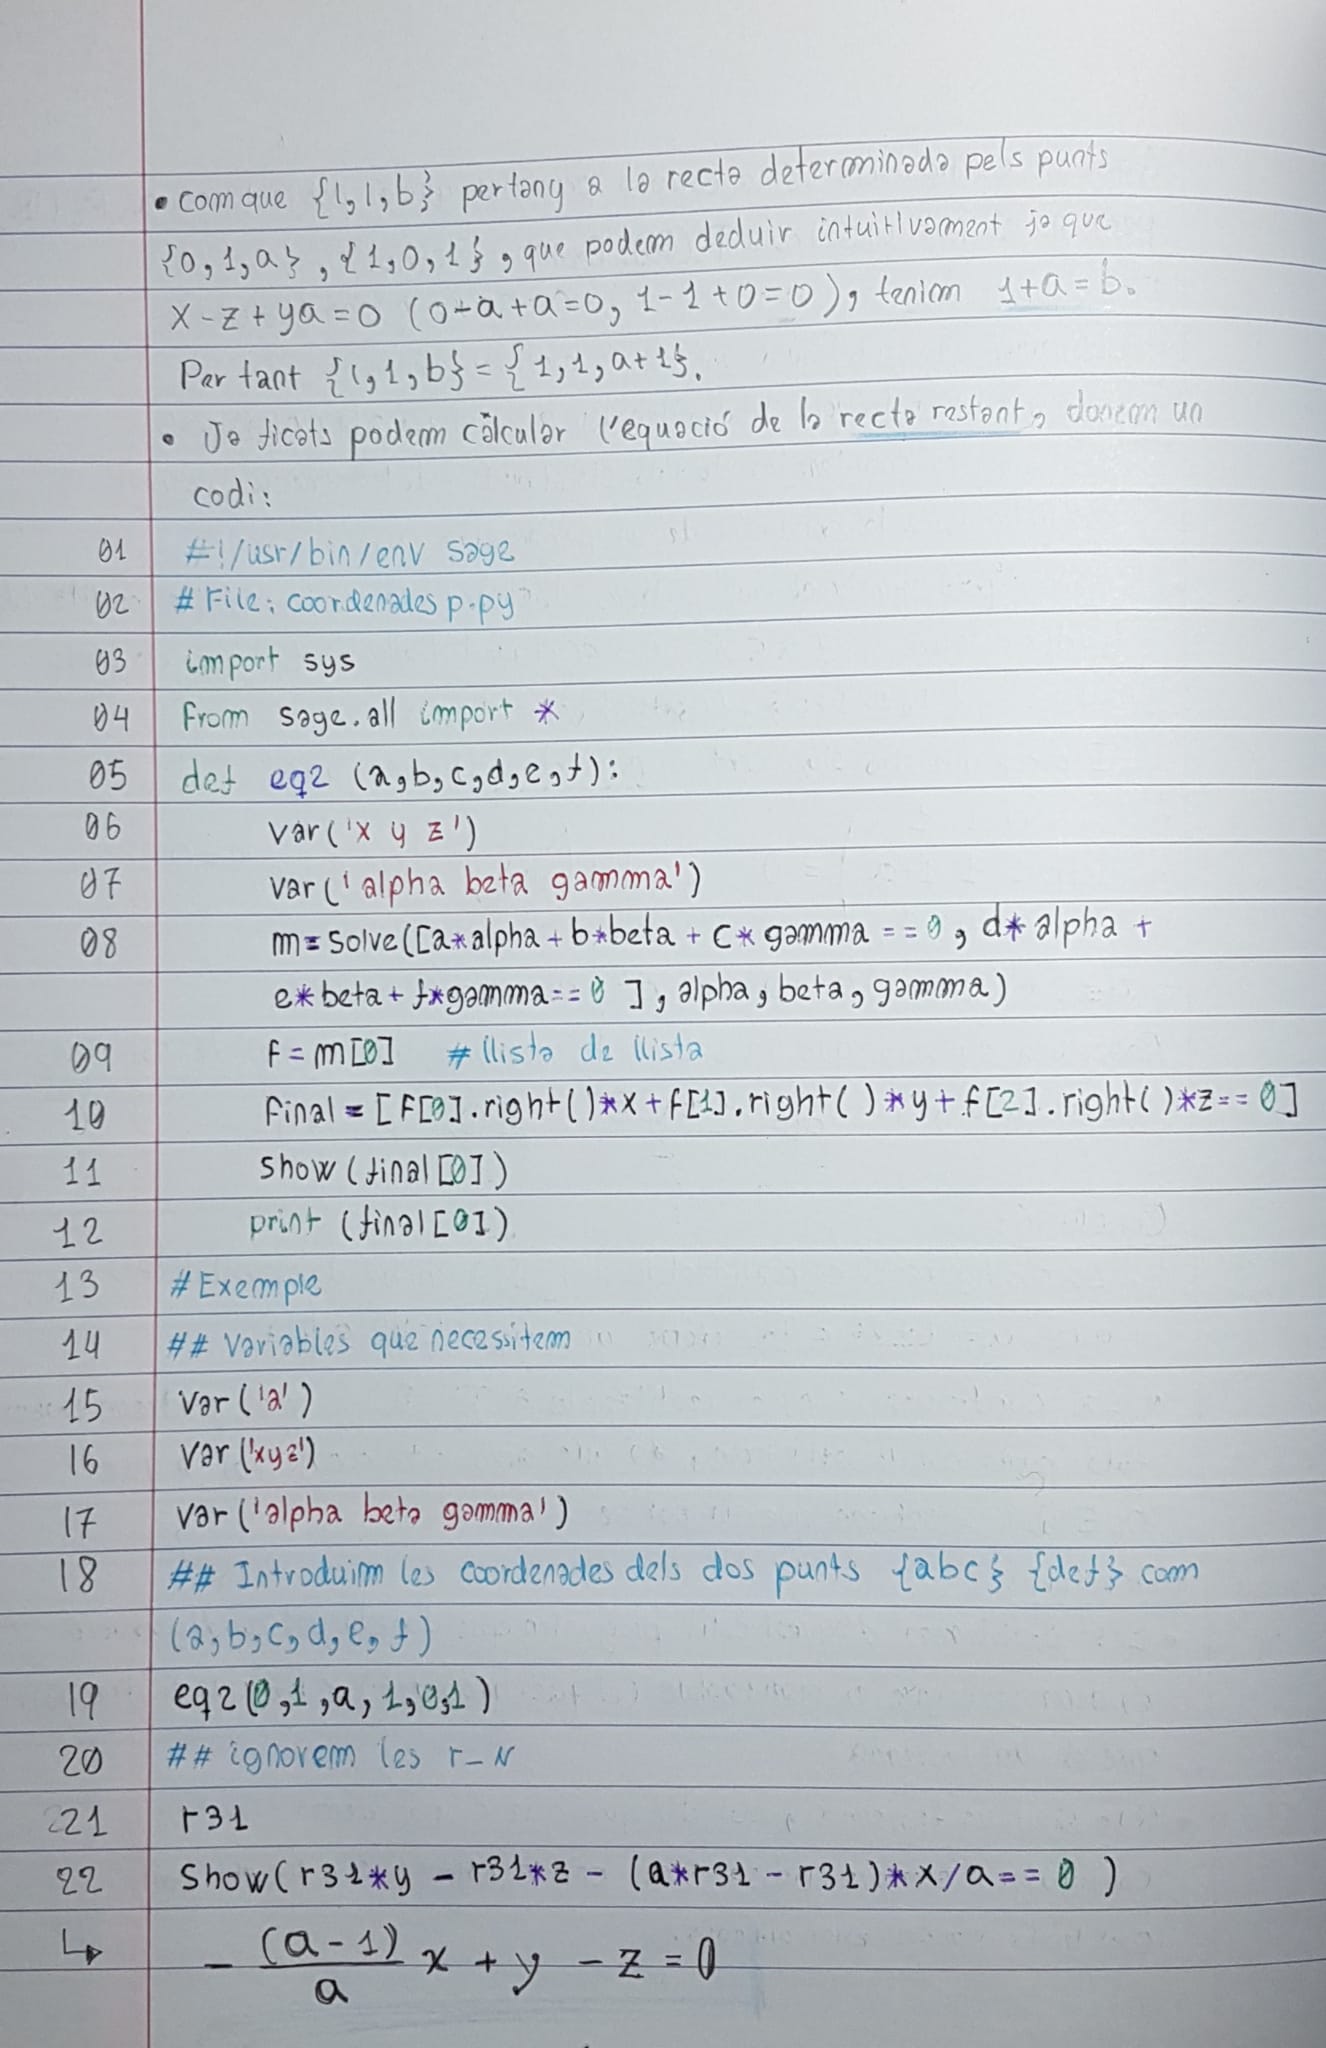 • Com que {1,1,b} pertany a la recta determinada pels punts
{0,1,a}, {1,0,1}, que podem deduir intuitivament ja que
x-z+ya=0 (0-a+a=0, 1-1+0=0), teniem 1+a=b.
Per tant {1,1,b}={1,1,a+1}.
• Ja ficats podem càlcular l'equació de la recta restant, donem un
codi:
01 #!/usr/bin/env sage
02 # File: coordenades p.py
03 import sys
04 from sage.all import *
05 def eq2 (a,b,c,d,e,f):
06 var('x y z')
07 var('alpha beta gamma')
08 m=solve([a*alpha+b*beta+c*gamma==0, d*alpha+
e*beta+f*gamma==0], alpha, beta, gamma)
09 f=m[0] # llista de llista
10 final=[f[0].right()*x+f[1].right()*y+f[2].right()*z==0]
11 show(final[0])
12 print(final[0])
13 # Exemple
14 ## Variables que necessitem
15 var('a')
16 var('xyz')
17 var('alpha beta gamma')
18 ## Introduim les coordenades dels dos punts {abc} {def} com
(a,b,c,d,e,f)
19 eq2(0,1,a,1,0,1)
20 ## ignorem les r_N
21 r31
22 Show(r31*y - r31*z - (a*r31 - r31)*x/a==0)
↳ - (a-1)/a x + y - z = 0